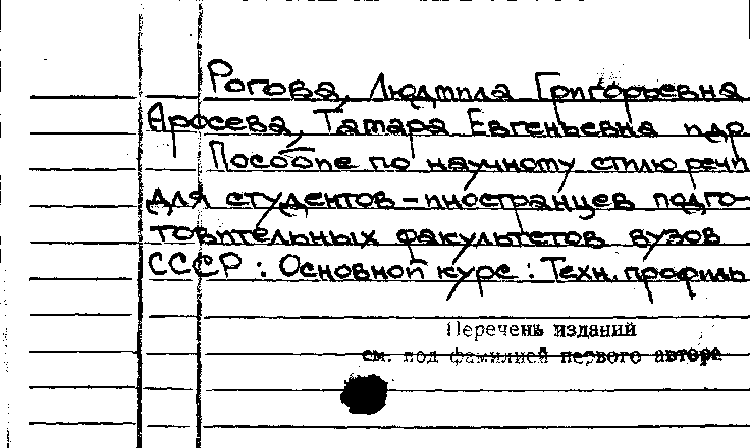 Рогова, Людмила Григорьевна
Аросева, Тамара Евгеньевна и др.
Пособие по научному стилю речи
для студентов-иностранцев подго-
товительных факультетов вузов
СССР : Основной курс : Техн. профиль
Перечень изданий
см. под фамилией первого автора